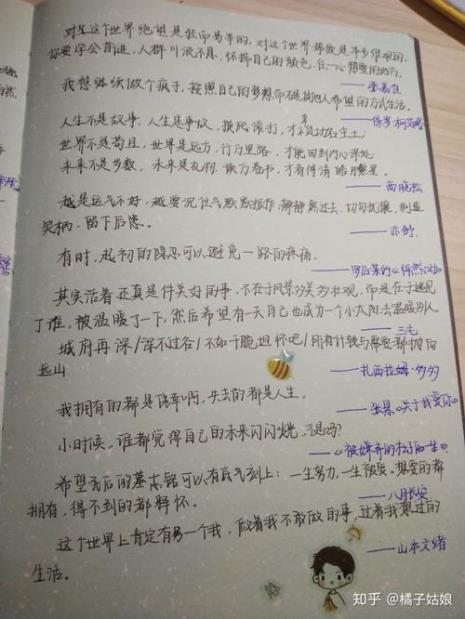 对这个世界绝望是轻而易举的,对这个世界挚爱是举步维艰的。
你要学会前进,人群川流不息,保持自己的颜色,在一心想要的地方。
——张嘉佳
我想继续做个疯子,按照自己的梦想而不是其他人希望的方式生活。
——保罗·柯艾略
人生不是故事,人生是事故,摸爬滚打,才不负功名尘土
世界不是苟且,世界是远方,行万里路,才能回到内心深处
未来不是岁数,未来是礼物,读万卷书,才看得清皓月繁星。
——高晓松
越是运气不好,越要沉住气默默振作,静静熬过去,切勿扰攘,别是
笑柄,留下后患。
——亦舒
有时,起初的隐忍可以避免一路的疼痛。
——《怦然心动》
其实活着还真是件美好的事,不在于风景多美多壮观,而是在于遇见
了谁,被温暖了一下,然后希望有一天自己也成为一个小太阳去温暖别人
——三毛
城府再深/深不过山谷/不如干脆坦怀吧/所有计较与摩擦都抛向
远山
——扎西拉姆·多多
我拥有的都是侥幸啊,失去的都是人生。
——张悬《关于我爱你》
小时候,谁都觉得自己的未来闪闪发光,不是吗?
——《被嫌弃的松子的一生》
希望死后的墓志铭可以有底气刻上:一生努力,一生被爱。想要的都
拥有,得不到的都释怀。
——八月长安
这个世界上肯定有另一个我,做着我不敢做的事,过着我想过的
生活。
——山本文绪
知乎 @橘子姑娘